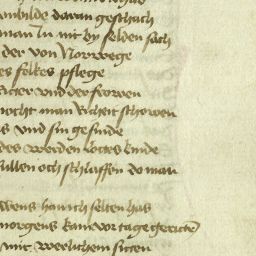 unbilde daran geschach
man In mit by selden sach
der von Norwege
es folkes pflege
Ritter vnd der frowen
mocht man Richeit schowen
s vnd sin gesinde
des werden lottes kinde
fullen och schluffen do man
wens han ich selten has
morgens kam vor tage gericten
mit weelichem sitten